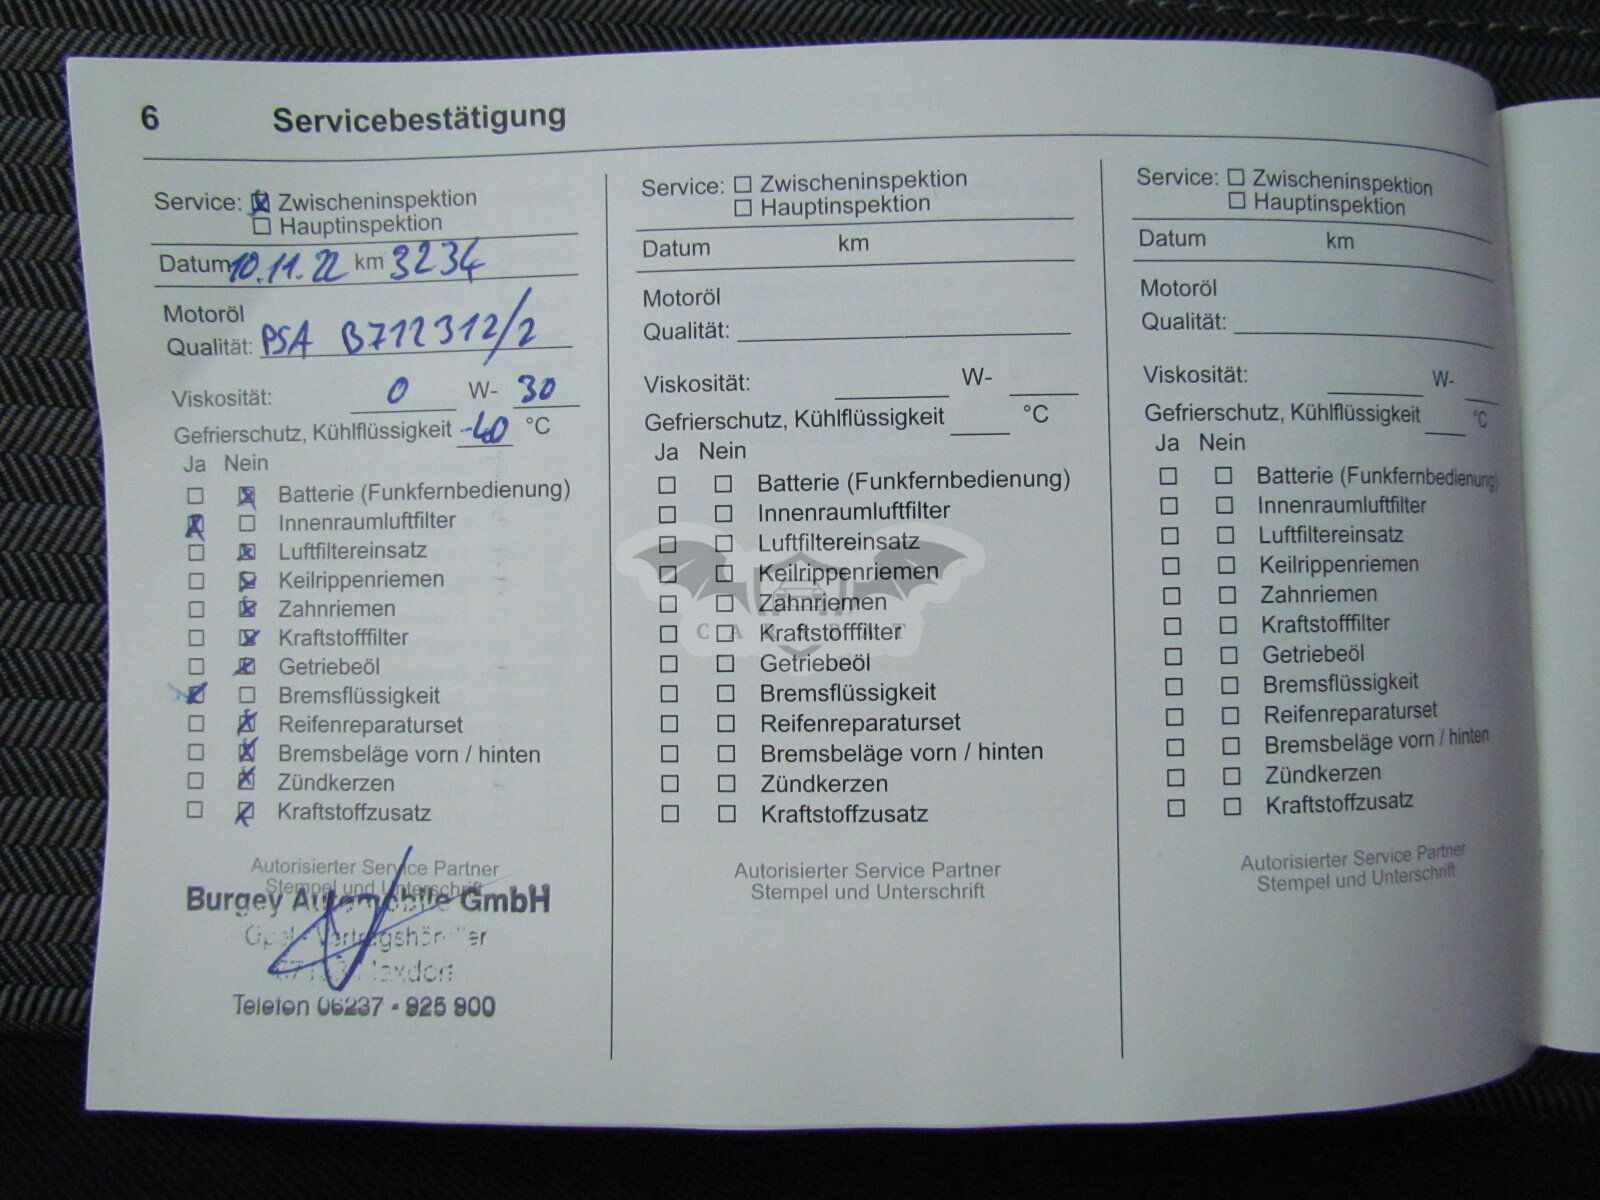 6 Servicebestätigung
Service: Zwischeninspektion
Hauptinspektion
Datum 10.11.22 km 3234
Motoröl
Qualität: PSA B712312/2
Viskosität: 0 W- 30
Gefrierschutz, Kühlflüssigkeit -40 °C
Ja Nein
Batterie (Funkfernbedienung)
Innenraumluftfilter
Luftfiltereinsatz
Keilrippenriemen
Zahnriemen
Kraftstofffilter
Getriebeöl
Bremsflüssigkeit
Reifenreparaturset
Bremsbeläge vorn / hinten
Zündkerzen
Kraftstoffzusatz
Autorisierter Service Partner
Stempel und Unterschrift
Burgey Automobile GmbH
Telefon 06237 - 925 900
Service: Zwischeninspektion
Hauptinspektion
Datum km
Motoröl
Qualität:
Viskosität: W-
Gefrierschutz, Kühlflüssigkeit °C
Ja Nein
Batterie (Funkfernbedienung)
Innenraumluftfilter
Luftfiltereinsatz
Keilrippenriemen
Zahnriemen
Kraftstofffilter
Getriebeöl
Bremsflüssigkeit
Reifenreparaturset
Bremsbeläge vorn / hinten
Zündkerzen
Kraftstoffzusatz
Autorisierter Service Partner
Stempel und Unterschrift
Service: Zwischeninspektion
Hauptinspektion
Datum km
Motoröl
Qualität:
Viskosität: W-
Gefrierschutz, Kühlflüssigkeit °C
Ja Nein
Batterie (Funkfernbedienung)
Innenraumluftfilter
Luftfiltereinsatz
Keilrippenriemen
Zahnriemen
Kraftstofffilter
Getriebeöl
Bremsflüssigkeit
Reifenreparaturset
Bremsbeläge vorn / hinten
Zündkerzen
Kraftstoffzusatz
Autorisierter Service Partner
Stempel und Unterschrift